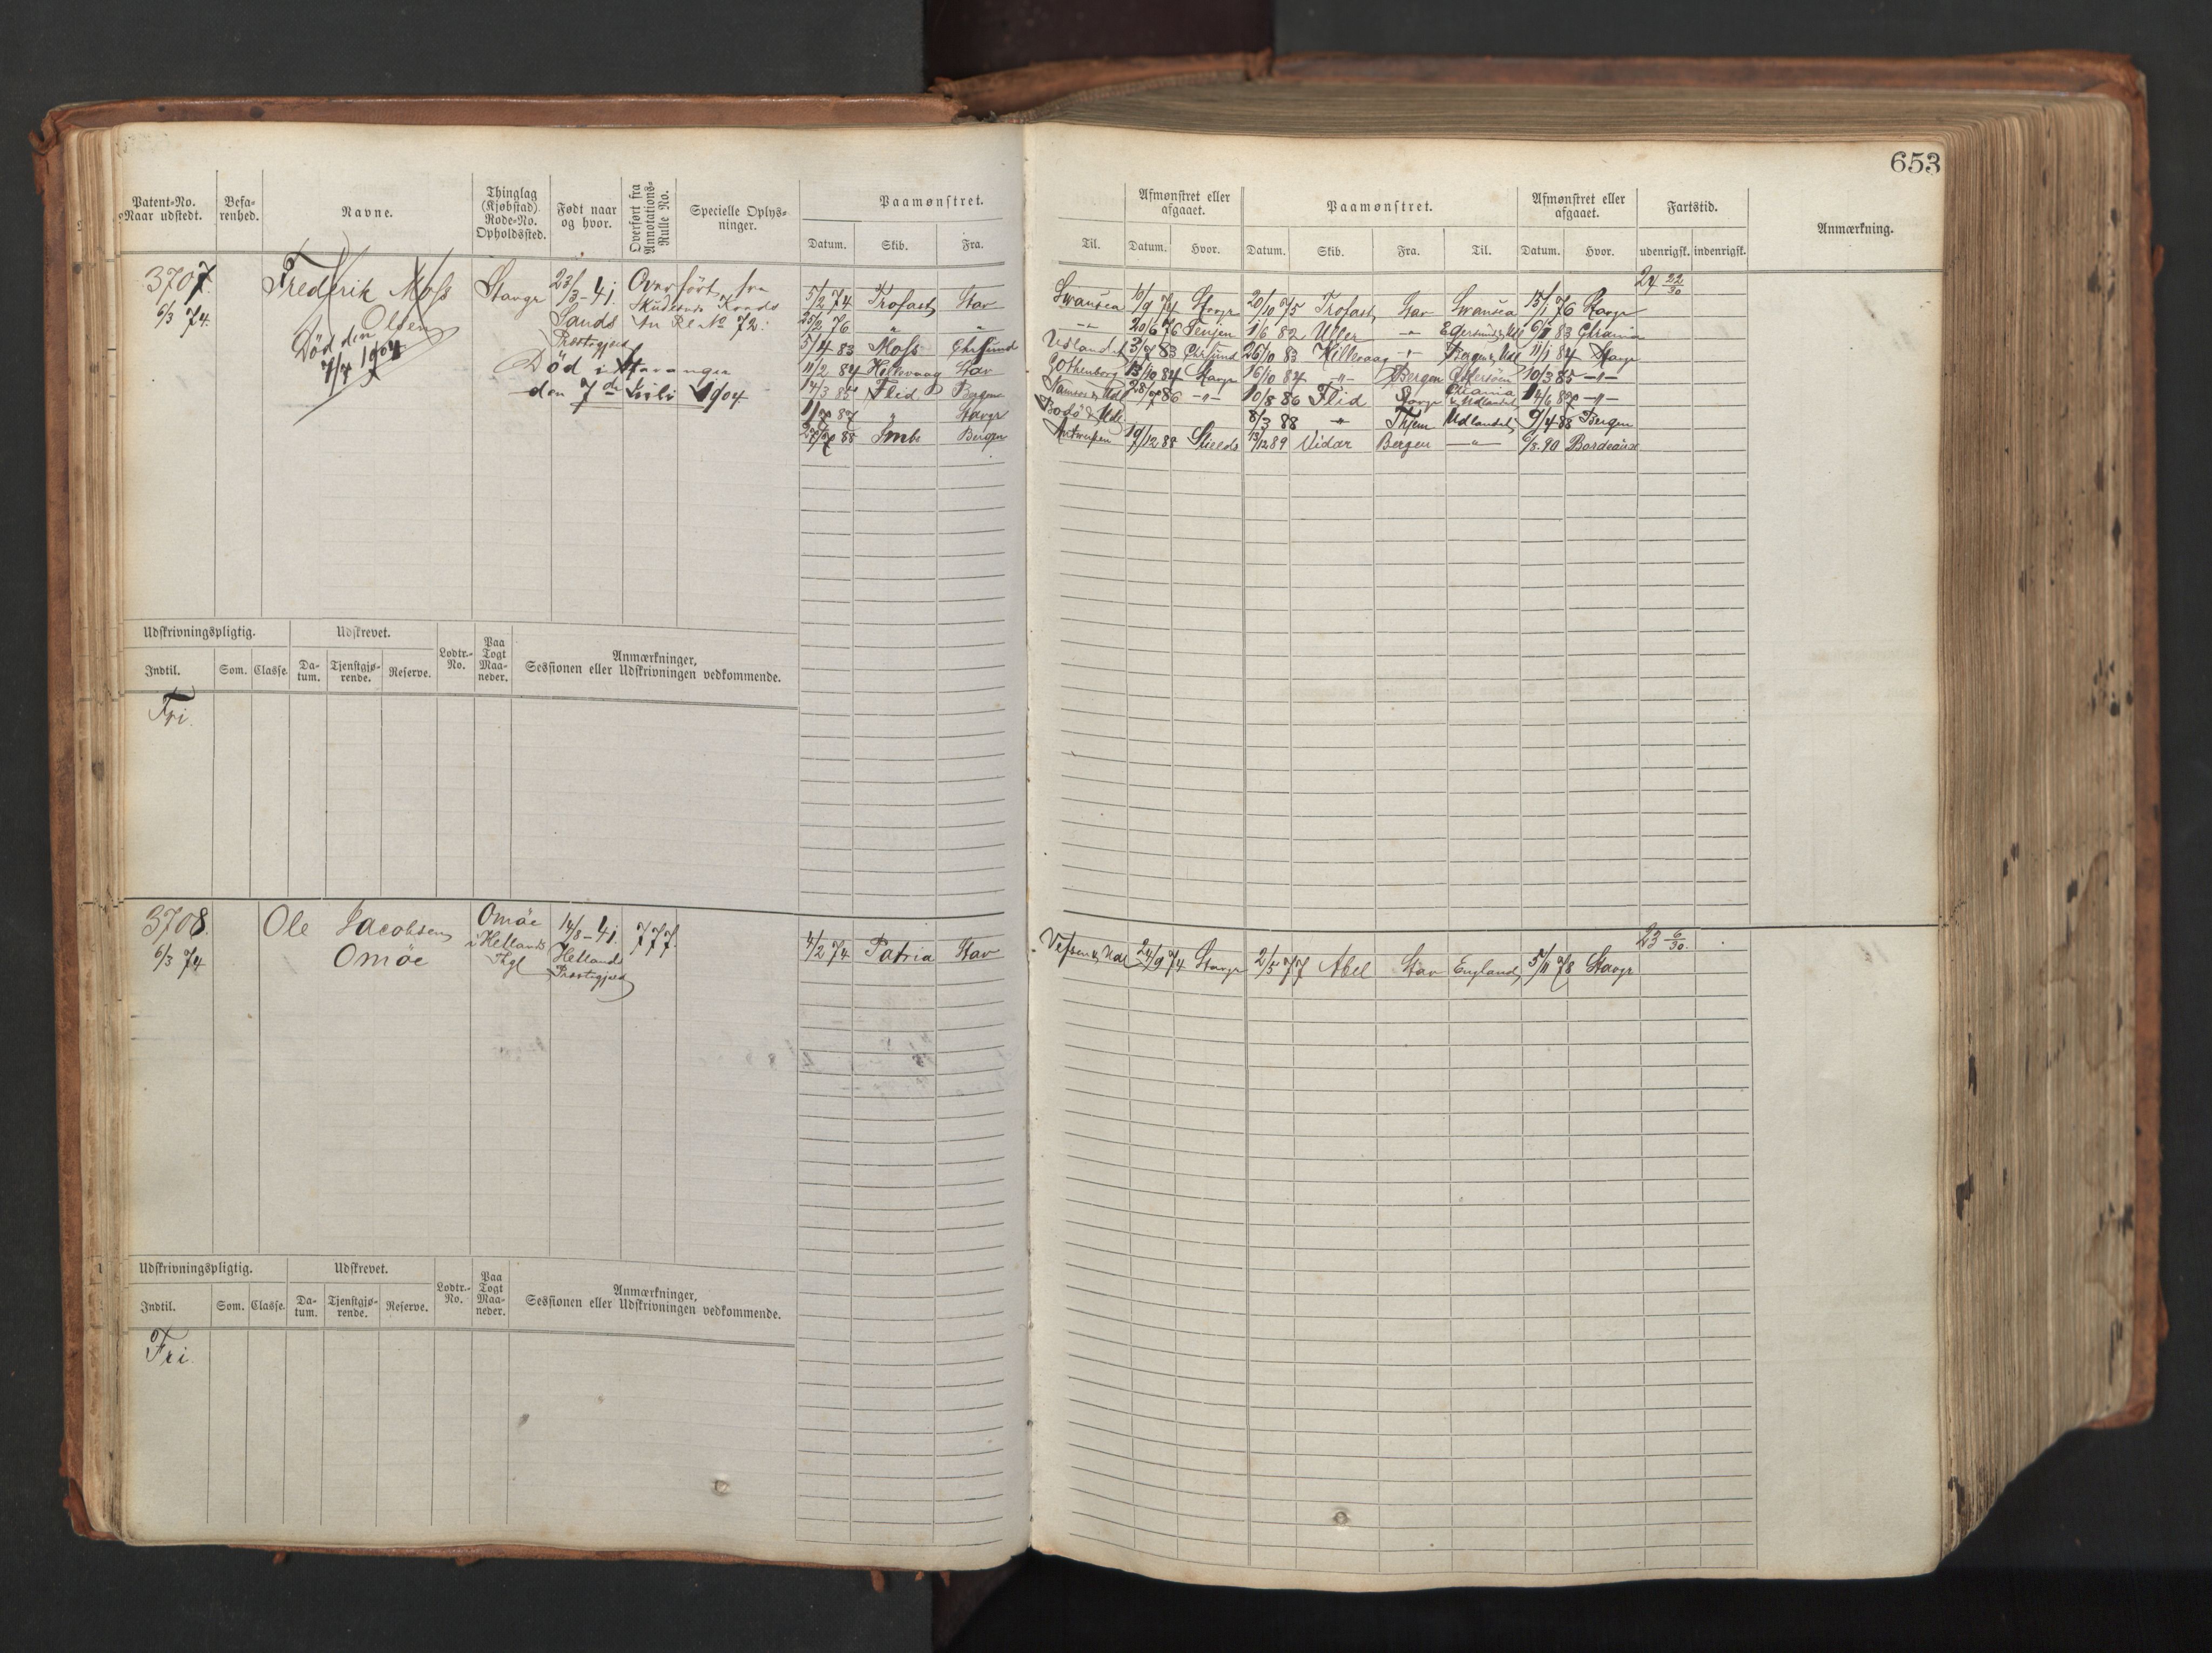 653
Patent-No. Naar udstedt. Befarenhed. Navne. Thinglag (Kjøbstad) Rode-No. Opholdssted. Født naar og hvor. Overført fra Annotations-Rulle No. Specielle Oplysninger. Paamønstret. Datum. Skib. Fra.
Til. Afmønstret eller afgaaet. Datum. Hvor. Paamønstret. Datum. Skib. Fra. Til. Afmønstret eller afgaaet. Datum. Hvor. Fartstid. udenrigsk. indenrigsk. Anmærkning.
3707. Frederik Moss Stavgr 23/3-41. Overført fra
6/3 74. Olsen Sands Skudesnds Kreds
Præstegjeld An Rl No 72.
Død den
7/7 1904
Død i Stavanger
den 7de Juli 1904
24 22/30
5/2 74 Trofast Stav Swansea 10/9 74 Stavgr 20/10 75 Trofast Stav Swansea 15/1 76 Stavgr
25/2 76 " " -"- 20/6 76 Senjen 1/6 82 Uller -"- Egersund & Udl 6/1 83 Chrania
5/4 83 Moss Chrsund Udlandet 3/7 83 Chrsund 26/10 83 Hillevaag -"- Bergen & Udl 11/1 84 Stavgr
11/2 84 Hillevaag Stav Gothenborg 13/10 84 Stavgr 16/10 84 -"- Bergen 10/3 85 -"-
14/3 85 Flid Bergen Namsos & Udl 28/7 86 -"- 10/8 86 Flid Stavgr Chrania & Udlandet 14/6 87 -"-
11/7 87 " Stavgr Bodø & Udl 8/3 88 " Thjem Udlandet 9/4 88 Bergen
27/7 88 Bergen Antwerpen 19/12 88 Shields 13/12 89 Vidar Bergen -"- 6/8 90 Bordeaux
Udskrivningspligtig. Udskrevet. Lodtr.-No. Paa Togt Maaneder. Anmærkninger, Sessionen eller Udskrivningen vedkommende.
Indtil. Som. Classe. Datum. Tjenstgjørende. Reserve.
Fri.
3708. Ole Jacobsen Omøe 14/8-41. 777.
6/3 74 Omöe i Hetlands Hetlands
Thgl Præstegjeld
23 6/30.
4/2 74 Patria Stav Vefsen & Udl 24/9 74 Stavgr 2/5 77 Abel Stav England 5/11 78 Stavgr
Udskrivningspligtig. Udskrevet. Lodtr.-No. Paa Togt Maaneder. Anmærkninger, Sessionen eller Udskrivningen vedkommende.
Indtil. Som. Classe. Datum. Tjenstgjørende. Reserve.
Fri.